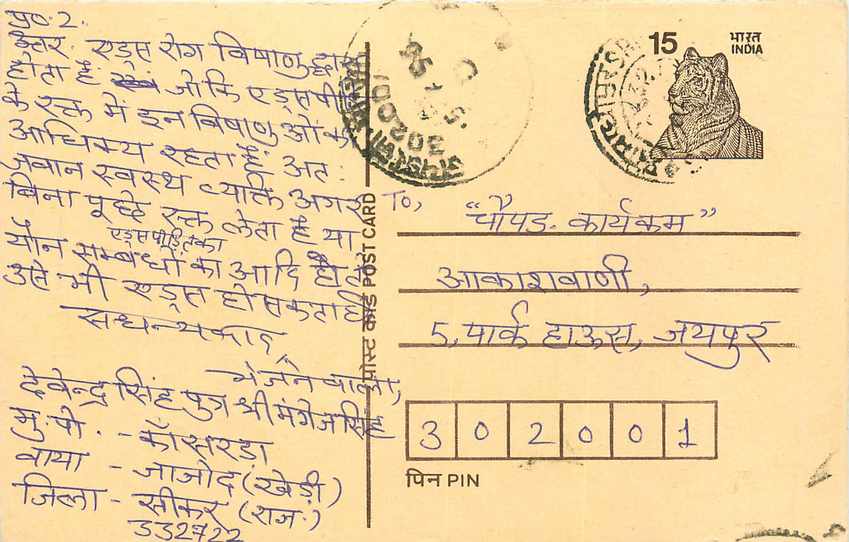 प्र०.2.
उत्तर. एड्स रोग विषाणु द्वारा
होता है जोकि एड्स
के रक्त में इन विषाणुओं की
आधिक्य रहता है अत
जवान स्वस्थ व्यक्ति अगर
बिना पूछे रक्त लेता है या
एड्स पीड़ित का
यौन सम्बधों का आदि
उसे भी एड्स हो सकता है
सधन्यवाद
भेजने वाला,
देवेन्द्र सिंह पुत्र श्री मंगेजसिंह
मु. पो. - काँसरडा
वाया - जाजोद (खेड़ी)
जिला - सीकर (राज.)
332722
पोस्ट कार्ड POST CARD
302001
15
भारत
INDIA
To,
“चौपड. कार्यकम”
आकाशवाणी,
5, पार्क हाऊस, जयपुर
3 0 2 0 0 1
पिन PIN